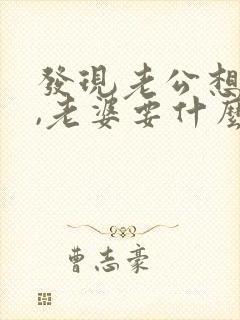 發現老公想
,老婆要什麼
曹志豪